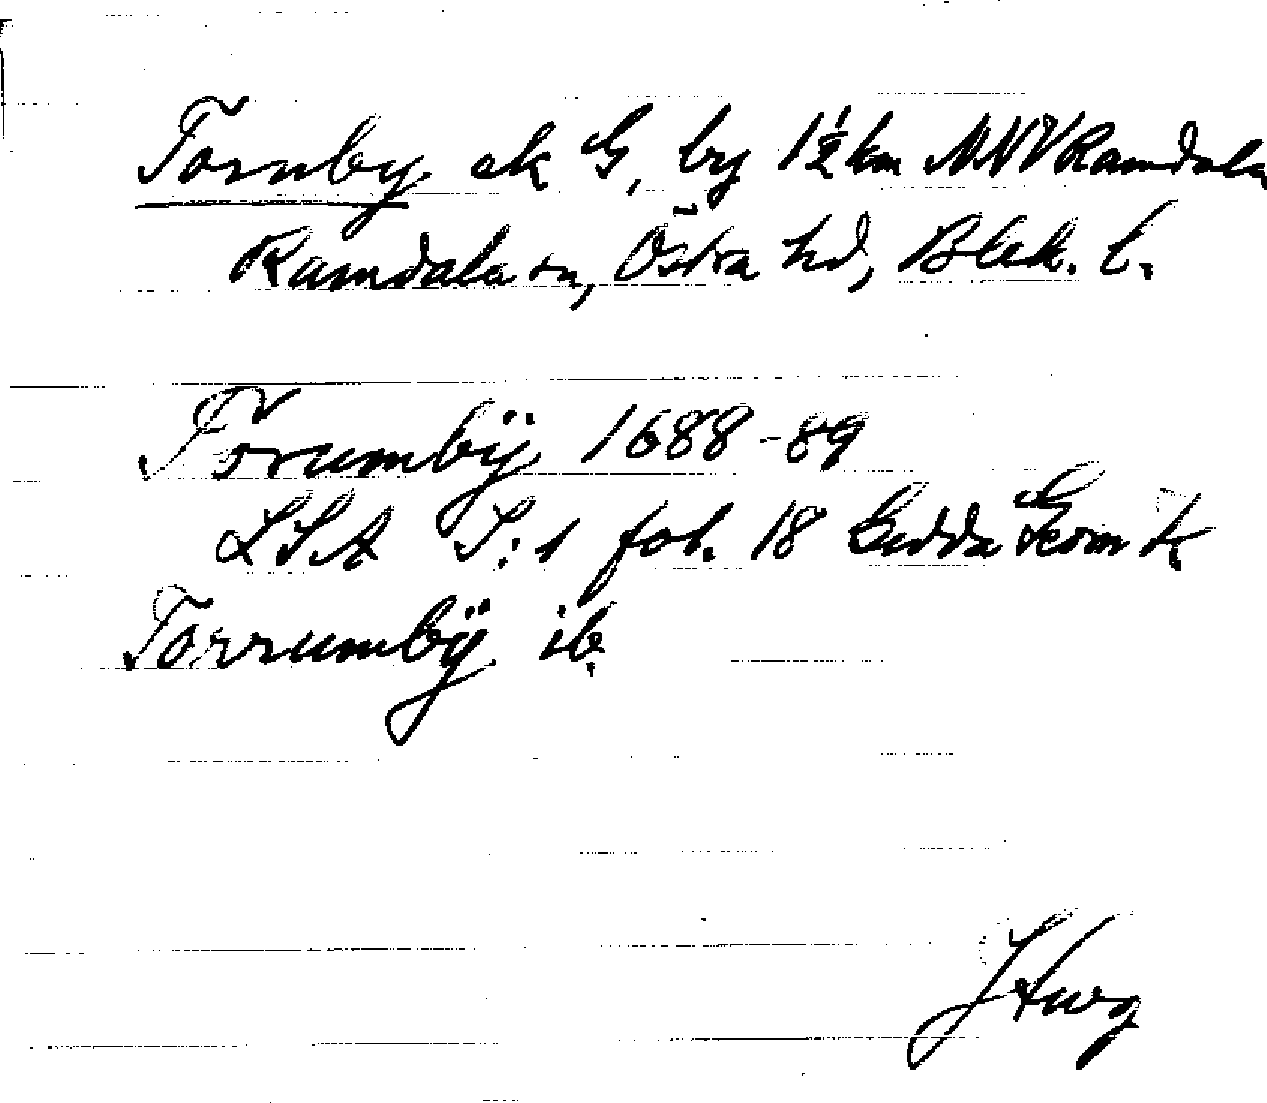 Tornby ek G, by 1½ km NNV Ramdala
Ramdala sn, Östra hd, Blek. l.
Torumbÿ 1688-89
LSA S:1 fol. 18 Gedda Geom k
Torrumbÿ ib.